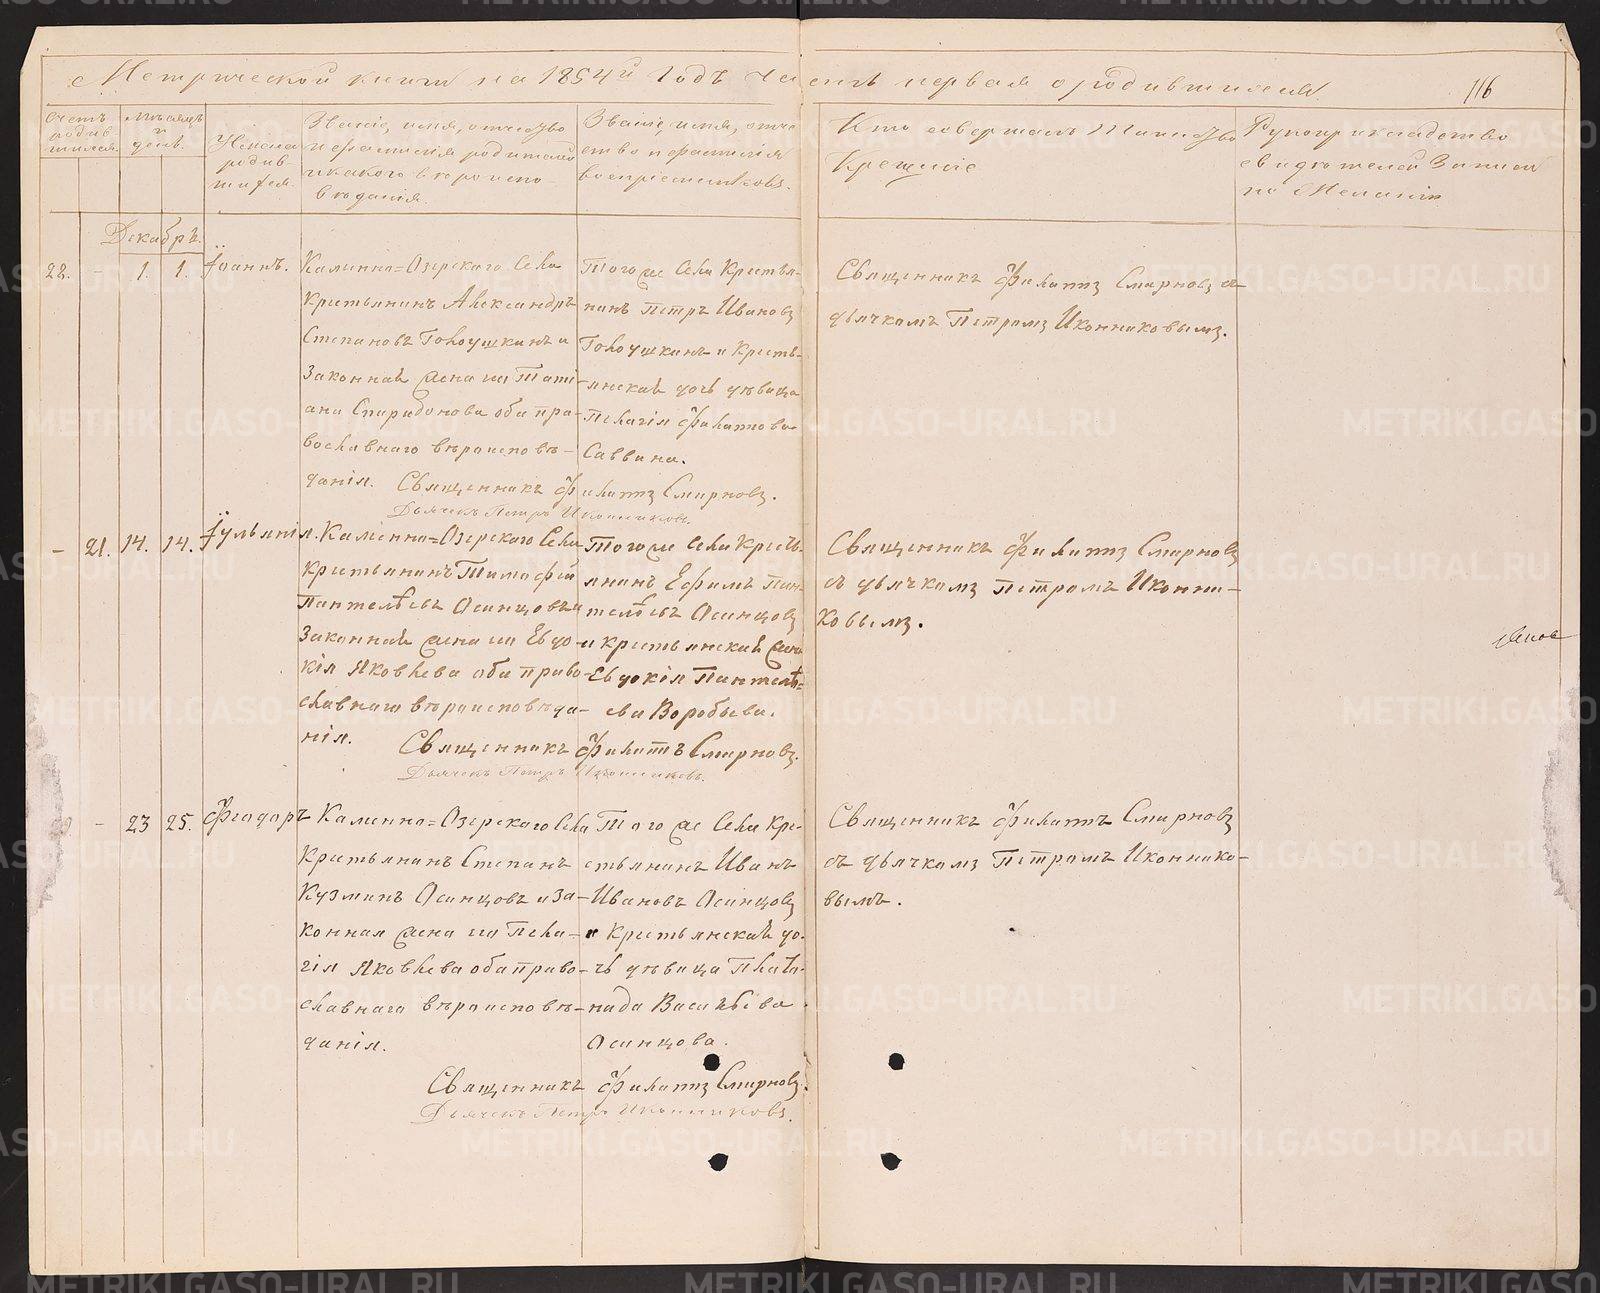 Метрической книги на 1854й Годъ часть первая о родившихся
116
Счетъ родив-шихся.
Мѣсяцъ и день.
Имена родив шихся.
Званіе, имя, отчество
и фамилія родителей
и какого вѣроиспо
вѣданія.
Званіе, имя, отче
ство и фамилія
воспріемниковъ.
Кто совершалъ Таинство
Крещенія
Рукоприкладство
свидѣтелей Записи
по Желанію
Декабрь.
22. - 1. 1. Іоаннъ.
Каменно=Озерскаго Села
Крестьянинъ Александръ
Степановъ Голоушкинъ и
Законная жена его Тати
ана Спиридонова оба пра-
вославнаго вѣроисповѣ-
данія.
Того же Села Крестья-
нинъ Петръ Ивановъ
Голоушкинъ и Кресть-
янская дочь дѣвица
Пелагія Филиппова
Саввина.
Священникъ Филиппъ Смирновъ.
Дьячекъ Петръ Иконниковъ.
Священникъ Филиппъ Смирновъ съ
дьячкомъ Петромъ Иконниковымъ.
- 21. 14. 14. Іуліанія.
Каменно=Озерскаго Села
Крестьянинъ Тимофей
Пантелѣевъ Осинцовъ и
Законная жена его Евдо-
кія Яковлева оба право
славнаго вѣроисповѣда-
нія.
Того же Села Кресть-
янинъ Ефимъ Пан-
телѣевъ Осинцовъ
и крестьянская жена
Евдокія Пантелѣ=
ева Воробьева.
Священникъ Филиппъ Смирновъ.
Дьячекъ Петръ Иконниковъ.
Священникъ Филиппъ Смирновъ
съ дьячкомъ Петромъ Иконни-
ковымъ.
- 23 25. Феодоръ
Каменно=Озерскаго Села
Крестьянинъ Степанъ
Кузминъ Осинцовъ и За-
конная жена его Пела-
гія Яковлева оба право-
славнаго вѣроисповѣ-
данія.
Того же Села Кре-
стьянинъ Иванъ
Ивановъ Осинцовъ
и Крестьянская до-
чь дѣвица
Васильева
Осинцова.
Священникъ Филиппъ Смирновъ.
Дьячекъ Петръ Иконниковъ.
Священникъ Филиппъ Смирновъ
съ дьячкомъ Петромъ Иконнико-
вымъ.
METRIKI.GASO-URAL.RU